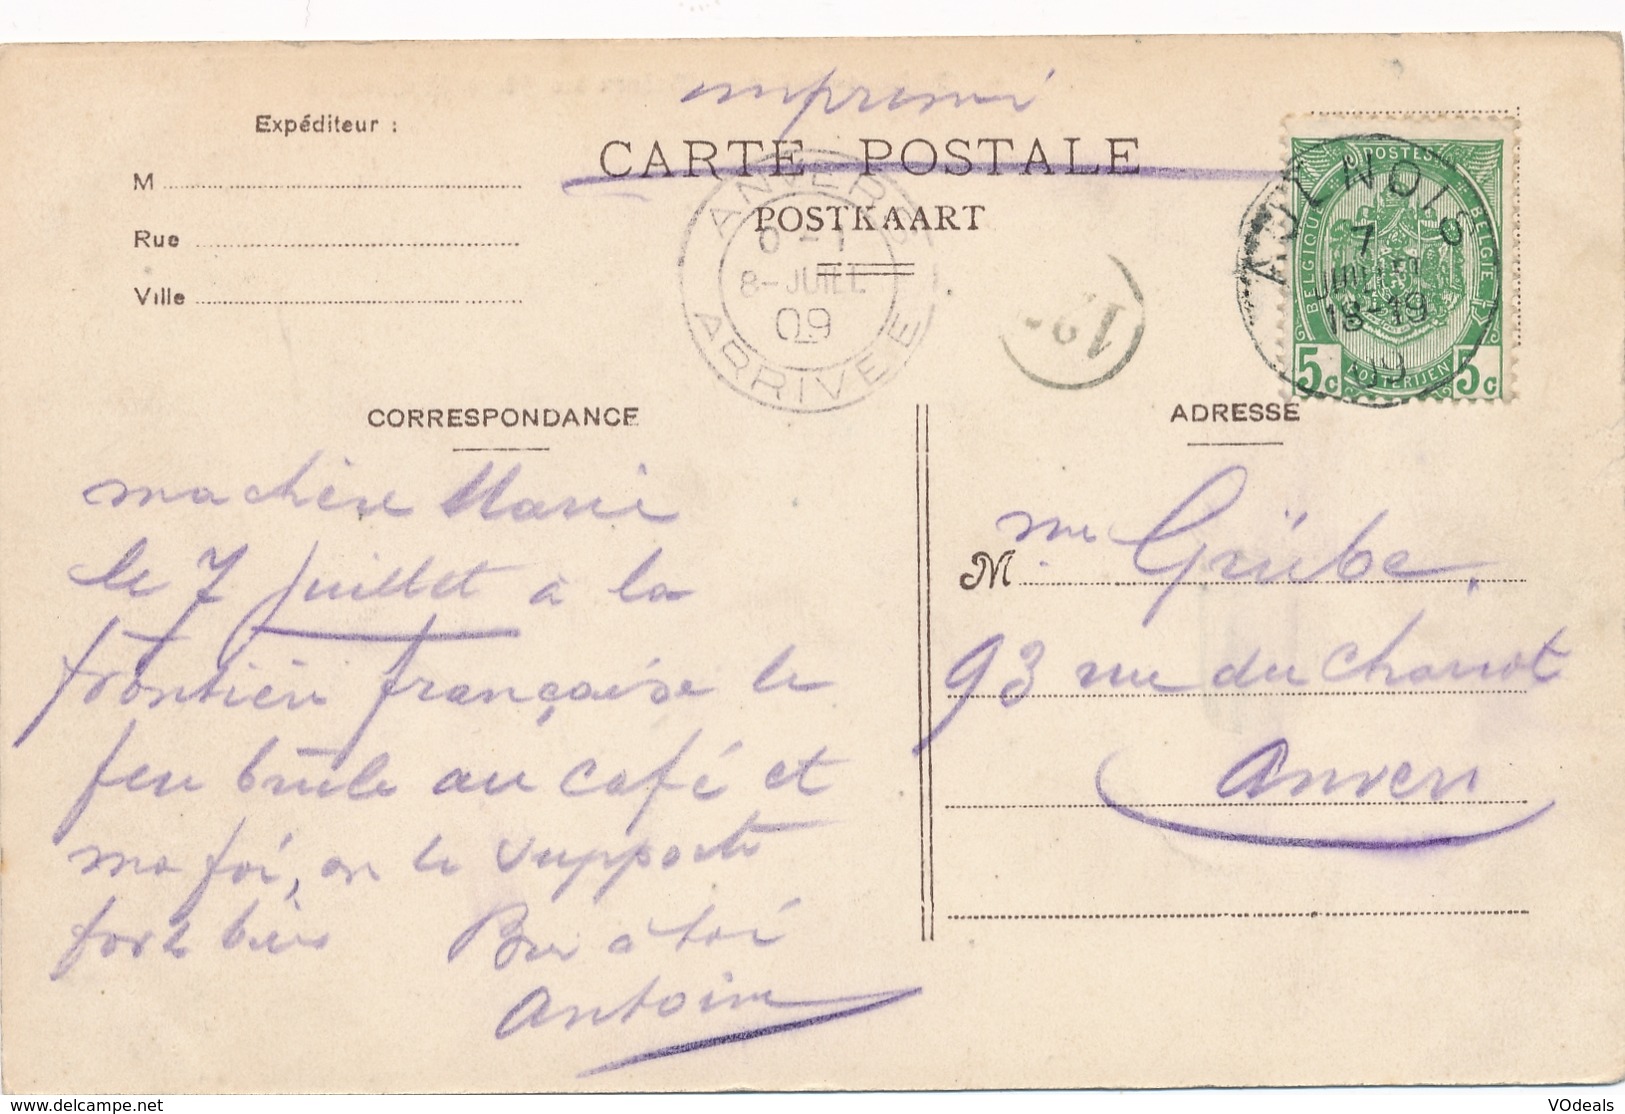 imprimé
Expéditeur :
CARTE POSTALE
POSTKAART
M
Rue
Ville
ANVERS
0-1
8-JUILL
09
ARRIVEE
12
AULNOIS
7
JUILLET
18-19
09
POSTES
BELGIQUE
BELGIE
POSTERIJEN
5c 5c
CORRESPONDANCE
ma chère Marie
le 7 juillet à la
frontière française le
feu brûle au café et
ma foi, on le supporte
fort bien Bon à toi
Antoine
ADRESSE
M me Grübe,
93 rue du Chariot
Anvers
delcampe.net
VOdeals